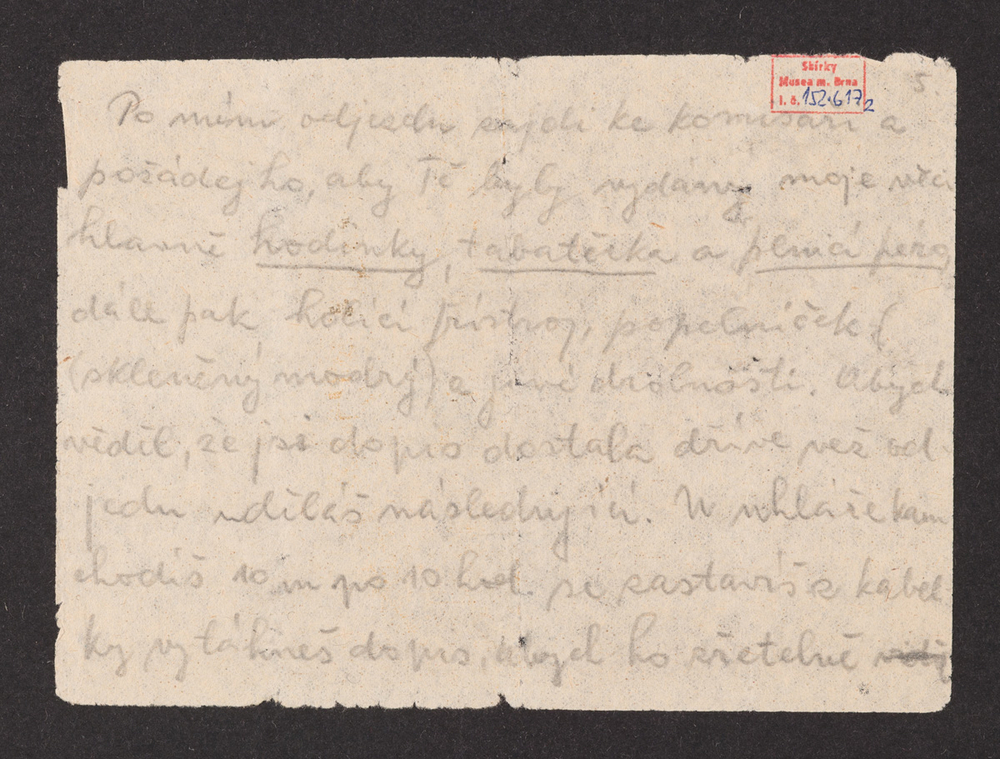 Sbírky
Musea m. Brna
i. č. 152.617/2
5.
Po mém odjezdu zajdi ke komisaři a
požádej ho, aby Tě byly vydány moje věci
hlavně hodinky, tabatěrka a plnicí péro,
dále pak holící přístroj, popelníček
(skleněný modrý) a jiné drobnosti. Abych
věděl, že jsi dopis dostala dříve než od-
jedu uděláš následující. U uhláře kam
chodíš 10 m po 10 hod. se zastavíš z kabel
ky vytáhneš dopis, abych ho zřetelně